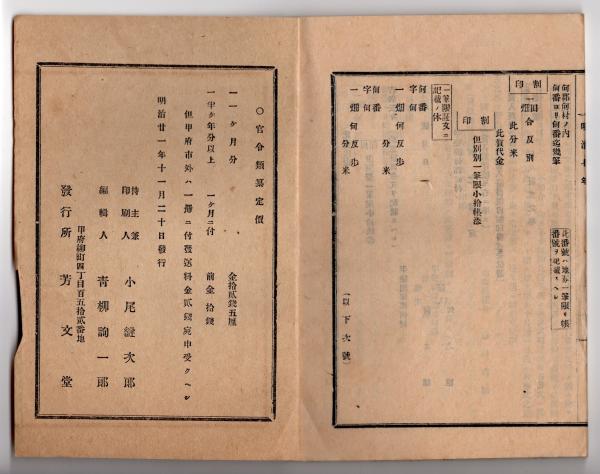 明治 年
何郡何村ノ内
何番ヨリ何番迄幾筆
割印
一畑合反別
此分米
此貫代金
割印
但別別一筆限小拾帳添
此番號ハ地券一筆限リ帳
番號ヲ記載スヘシ
一筆限証文ニ
記載ノ体
何番
字何
一畑何反歩
分米
何番
字何
一畑何反歩
分米
(以下次號)
○官令類纂定價
一一ケ月分 金拾貳錢五厘
一半ケ年分以上 一ケ月ニ付 前金拾錢
但甲府市外ハ一册ニ付遞送料金貳錢宛申受クヘシ
明治廿一年十一月二十日發行
持主兼
印刷人 小尾繼次郎
編輯人 靑柳詢一郎
甲府柳町四丁目百五拾貳番地
發行所 芳文堂